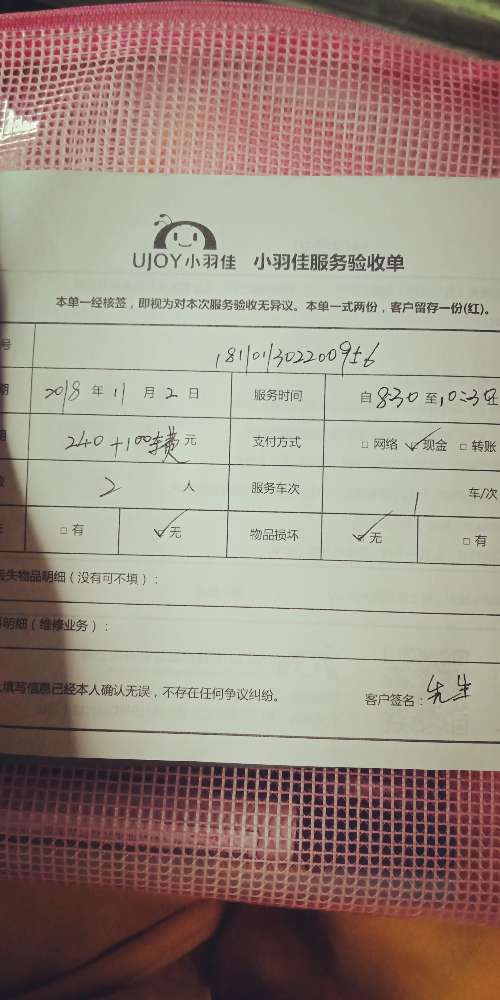 UJOY小羽佳 小羽佳服务验收单
本单一经核签，即视为对本次服务验收无异议。本单一式两份，客户留存一份(红)。
号 18101302200956
期 2018 年 11 月 2 日 服务时间 自 8:30 至 10:30
240+100车费 元 支付方式 □ 网络 ☑ 现金 □ 转账
2 人 服务车次 1 车/次
□ 有 ☑ 无 物品损坏 ☑ 无 □ 有
丢失物品明细（没有可不填）：
明细（维修业务）：
填写信息已经本人确认无误，不存在任何争议纠纷。 客户签名：先生